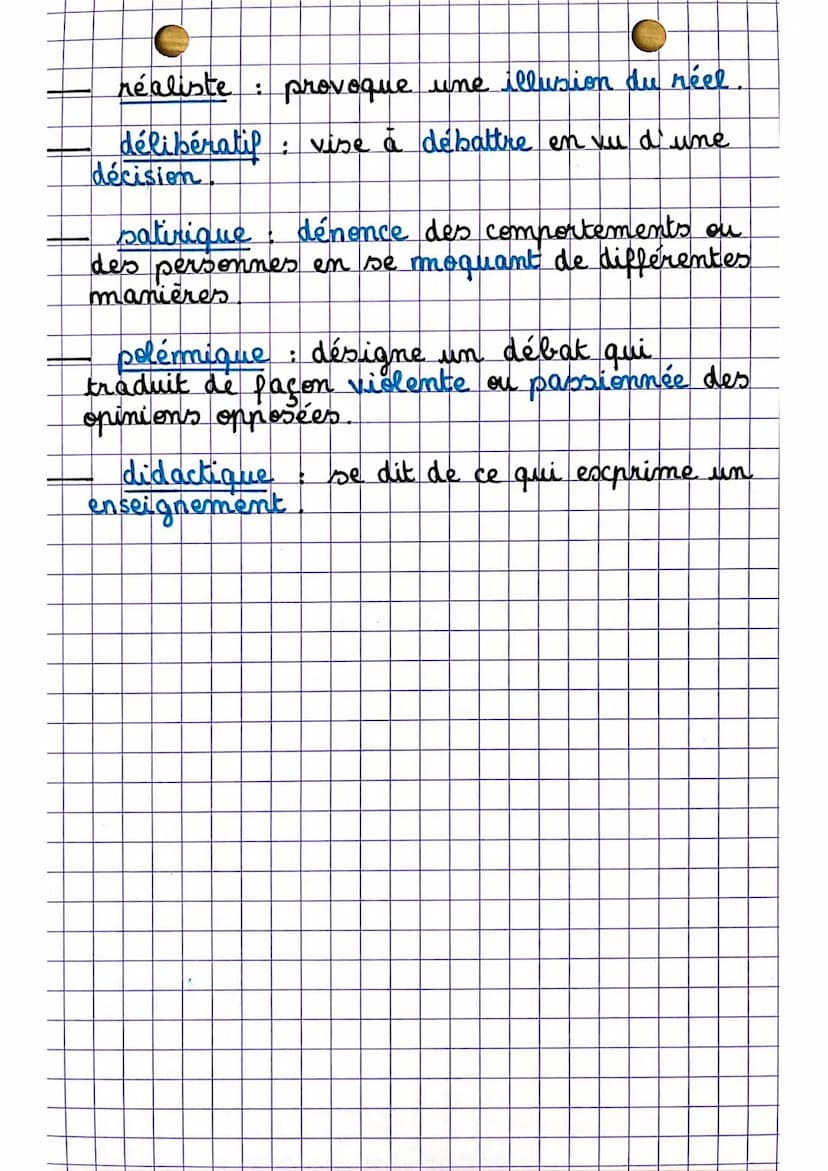 — réaliste : provoque une illusion du réel.
— délibératif : vise à débattre en vu d'une
décision.
— satirique : dénence des comportements ou
des personnes en se moquant de différentes
manières.
— polémique : désigne un débat qui
traduit de façon violente ou passionnée des
opinions opposées.
— didactique : se dit de ce qui exprime un
enseignement.